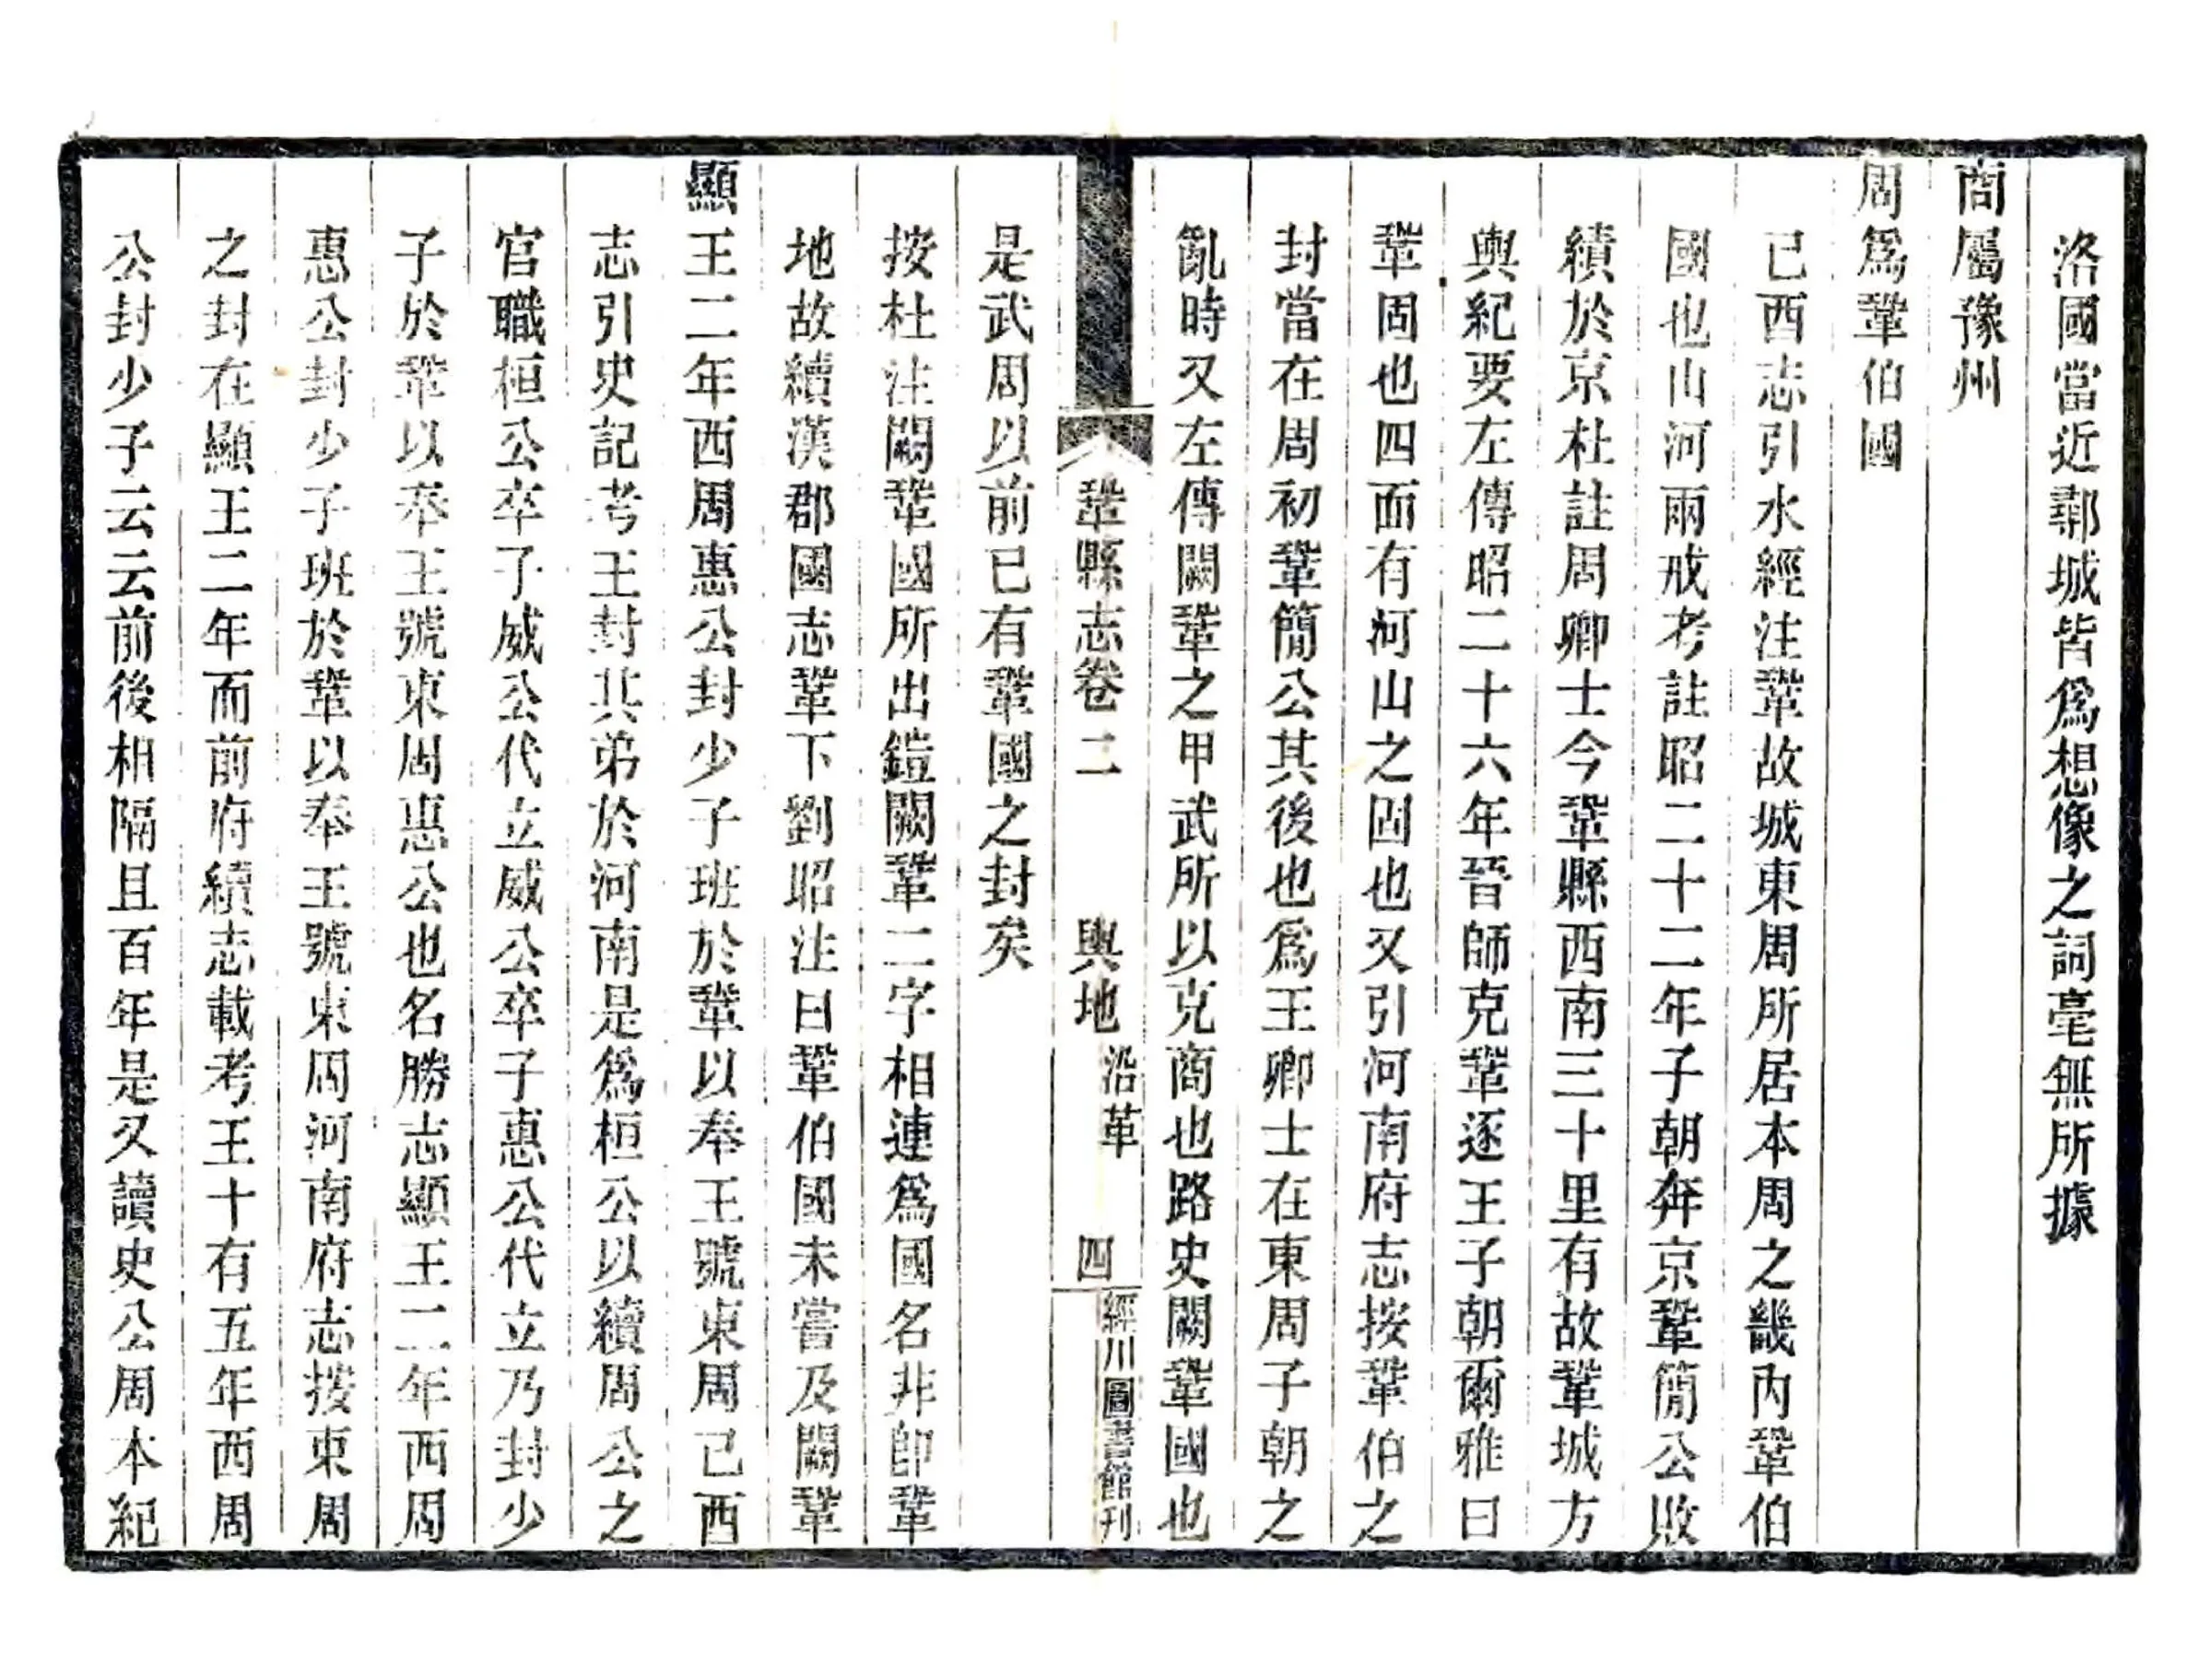 洛國當近鄩城皆爲想像之詞毫無所據
商屬豫州
周爲鞏伯國
己酉志引水經注鞏故城東周所居本周之畿內鞏伯
國也山河兩戒考註昭二十二年子朝奔京鞏簡公敗
績於京杜註周卿士今鞏縣西南三十里有故鞏城方
輿紀要左傳昭二十六年晉師克鞏逐王子朝爾雅曰
鞏固也四面有河山之固也又引河南府志按鞏伯之
封當在周初鞏簡公其後也爲王卿士在東周子朝之
亂時又左傳闕鞏之甲武所以克商也路史闕鞏國也
鞏縣志卷二 輿地 沿革 四 經川圖書館刊
是武周以前已有鞏國之封矣
按杜注闕鞏國所出鎧闕鞏二字相連爲國名非卽鞏
地故續漢郡國志鞏下劉昭注曰鞏伯國未嘗及闕鞏
顯王二年西周惠公封少子班於鞏以奉王號東周己酉
志引史記考王封其弟於河南是爲桓公以續周公之
官職桓公卒子威公代立威公卒子惠公代立乃封少
子於鞏以奉王號東周惠公也名勝志顯王二年西周
惠公封少子班於鞏以奉王號東周河南府志按東周
之封在顯王二年而前府續志載考王十有五年西周
公封少子云云前後相隔且百年是又讀史公周本紀